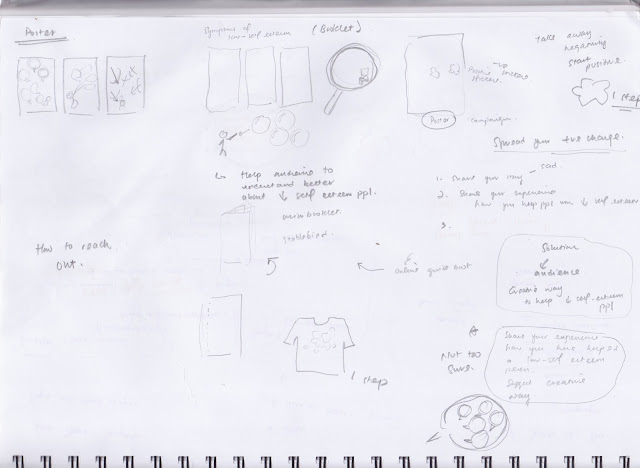 Poster
Symptoms of
low-self esteem
(Booklet)
Take away
negativity
start
positive.
1 step
Poster
campaign
Spread your +ve change.
1. Share your story
sad.
2. Share your experience
how you help ppl with ↓ self-esteem
3.
↳ Help audience to
understand better
about ↓ self esteem ppl.
booklet.
How to reach
out.
Solution
↓
audience
Creative way
to help ↓ self-esteem
ppl
1 step
Not too
sure.
Share your experience
how you have helped
a low-self esteem
person.
creative
way